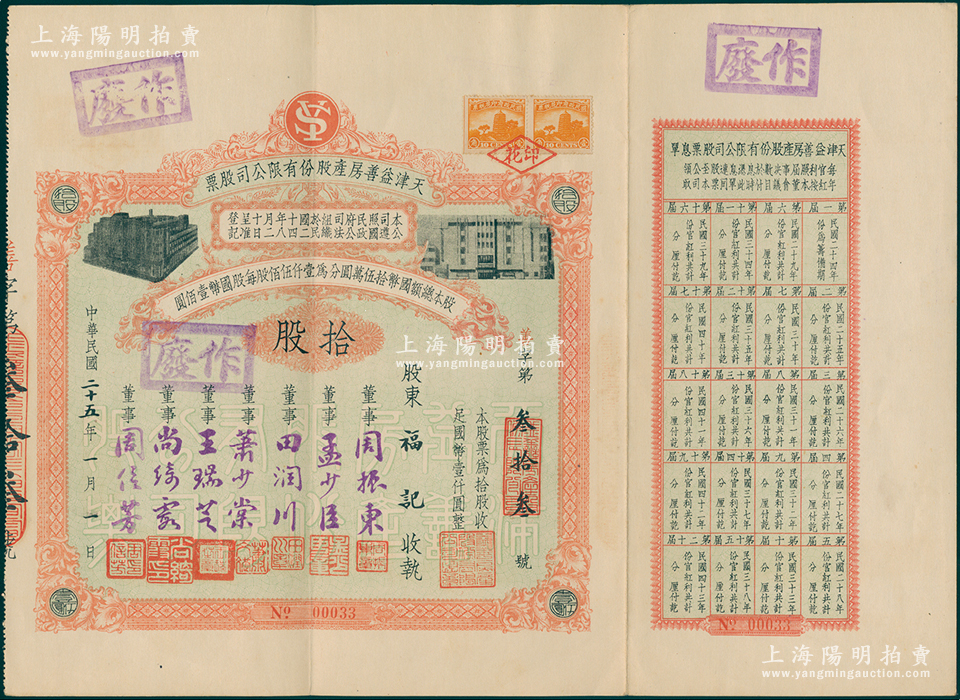 上海陽明拍賣
www.yangmingauction.com
作廢
作廢
天津益善房產股份有限公司股票
本公司遵照國民政府公司法組織於民國二十四年十月八日呈准登記
股本總額國幣拾伍萬圓分為壹仟伍佰股每股國幣壹佰圓
作廢
拾股
善字第叁拾叁號
本股票為拾股收
足國幣壹仟圓整
股東 福記 收執
董事 周振東
董事 孟少臣
董事 田潤川
董事 蕭少棠
董事 王瑞芝
董事 尚綺霞
董事
中華民國二十五年一月一日
No 00033
印花
天津益善房產股份有限公司股票息單
第一屆
民國二十四年
份為籌備期
第二屆
民國二十五年
份官紅利共計
分 厘付訖
第三屆
民國二十六年
份官紅利共計
分 厘付訖
第四屆
民國二十七年
份官紅利共計
分 厘付訖
第五屆
民國二十八年
份官紅利共計
分 厘付訖
第六屆
民國二十九年
份官紅利共計
分 厘付訖
第七屆
民國三十年
份官紅利共計
分 厘付訖
第八屆
民國三十一年
份官紅利共計
分 厘付訖
第九屆
民國三十二年
份官紅利共計
分 厘付訖
第十屆
民國三十三年
份官紅利共計
分 厘付訖
第十一屆
民國三十四年
份官紅利共計
分 厘付訖
第十二屆
民國三十五年
份官紅利共計
分 厘付訖
第十三屆
民國三十六年
份官紅利共計
分 厘付訖
第十四屆
民國三十七年
份官紅利共計
分 厘付訖
第十五屆
民國三十八年
份官紅利共計
分 厘付訖
第十六屆
民國三十九年
份官紅利共計
分 厘付訖
第十七屆
民國四十年
份官紅利共計
分 厘付訖
第十八屆
民國四十一年
份官紅利共計
分 厘付訖
第十九屆
民國四十二年
份官紅利共計
分 厘付訖
第二十屆
民國四十三年
份官紅利共計
分 厘付訖
No 00033
上海陽明拍賣
www.yangmingauction.com
上海陽明拍賣
www.yangmingauction.com